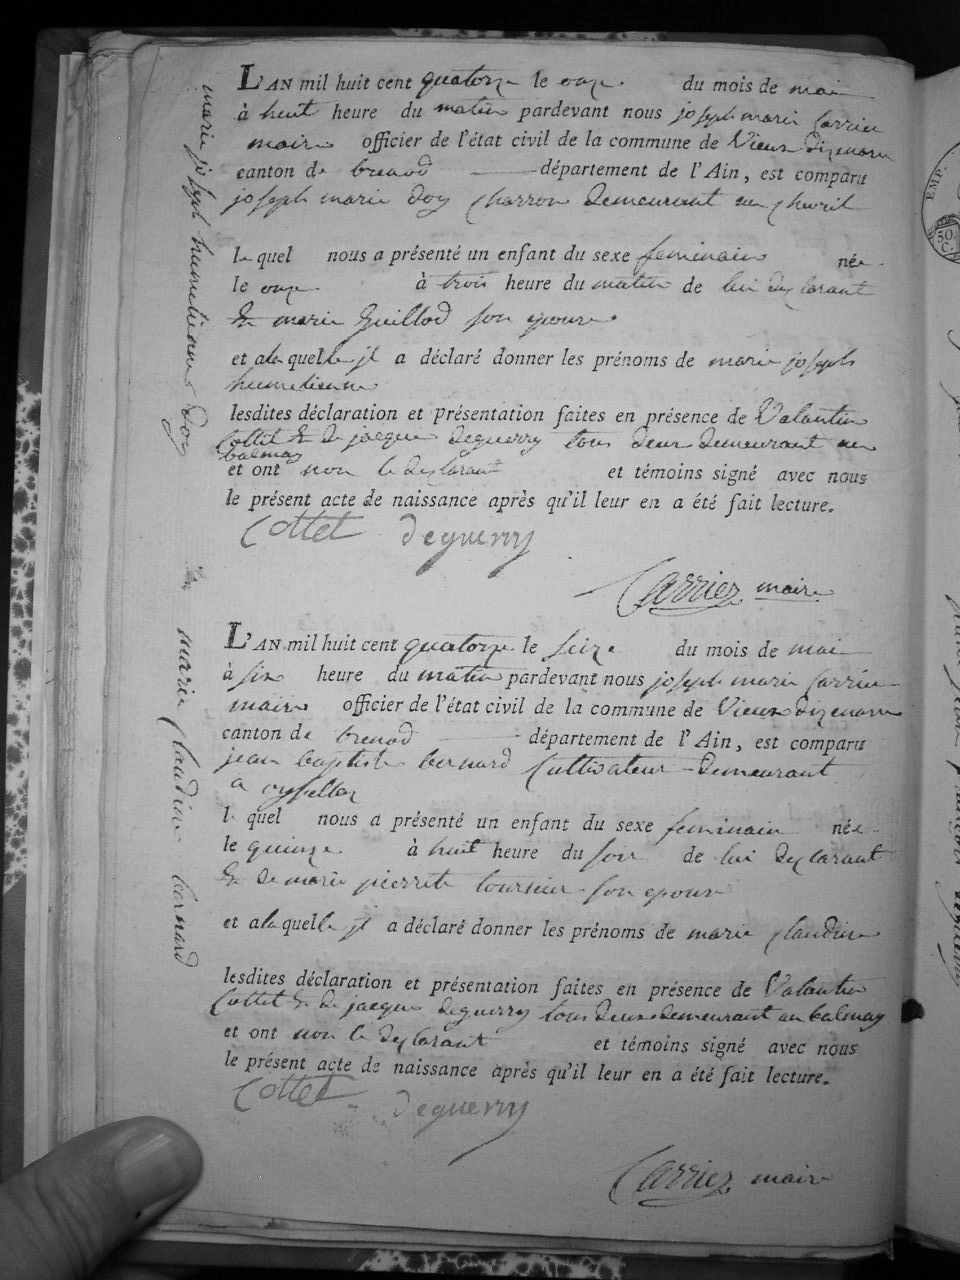 L'AN mil huit cent quatorze le onze du mois de mai
à huit heure du matin pardevant nous joseph marie Carrier
maire officier de l'état civil de la commune de Vieux dizenave
canton de brenod département de l'Ain, est comparu
joseph marie Doy charron Demeurant au
le quel nous a présenté un enfant du sexe feminain née
le onze à trois heure du matin de lui declarant
& marie Guillod son epouse
et a la quelle il a déclaré donner les prénoms de marie joseph
humelienne
lesdites déclaration et présentation faites en présence de Valantin
Cottet & de jacque deguerry tous deux demeurant au
balmay
et ont non le declarant et témoins signé avec nous
le présent acte de naissance après qu'il leur en a été fait lecture.
Cottet deguerry
Carrier maire
marie joseph humelienne Doy
L'AN mil huit cent quatorze le seize du mois de mai
à six heure du matin pardevant nous joseph marie Carrier
maire officier de l'état civil de la commune de Vieux dizenave
canton de brenod département de l'Ain, est comparu
jean baptiste bernard Cultivateur Demeurant
a
le quel nous a présenté un enfant du sexe feminain née
le quinze à huit heure du soir de lui declarant
& de marie pierrete tournier son epouse
et a la quelle il a déclaré donner les prénoms de marie claudine
lesdites déclaration et présentation faites en présence de Valantin
Cottet & de jacque deguerry tous deux demeurant au balmay
et ont non le declarant et témoins signé avec nous
le présent acte de naissance après qu'il leur en a été fait lecture.
Cottet deguerry
Carrier maire
marie claudine bernard
EMP.
50
C.